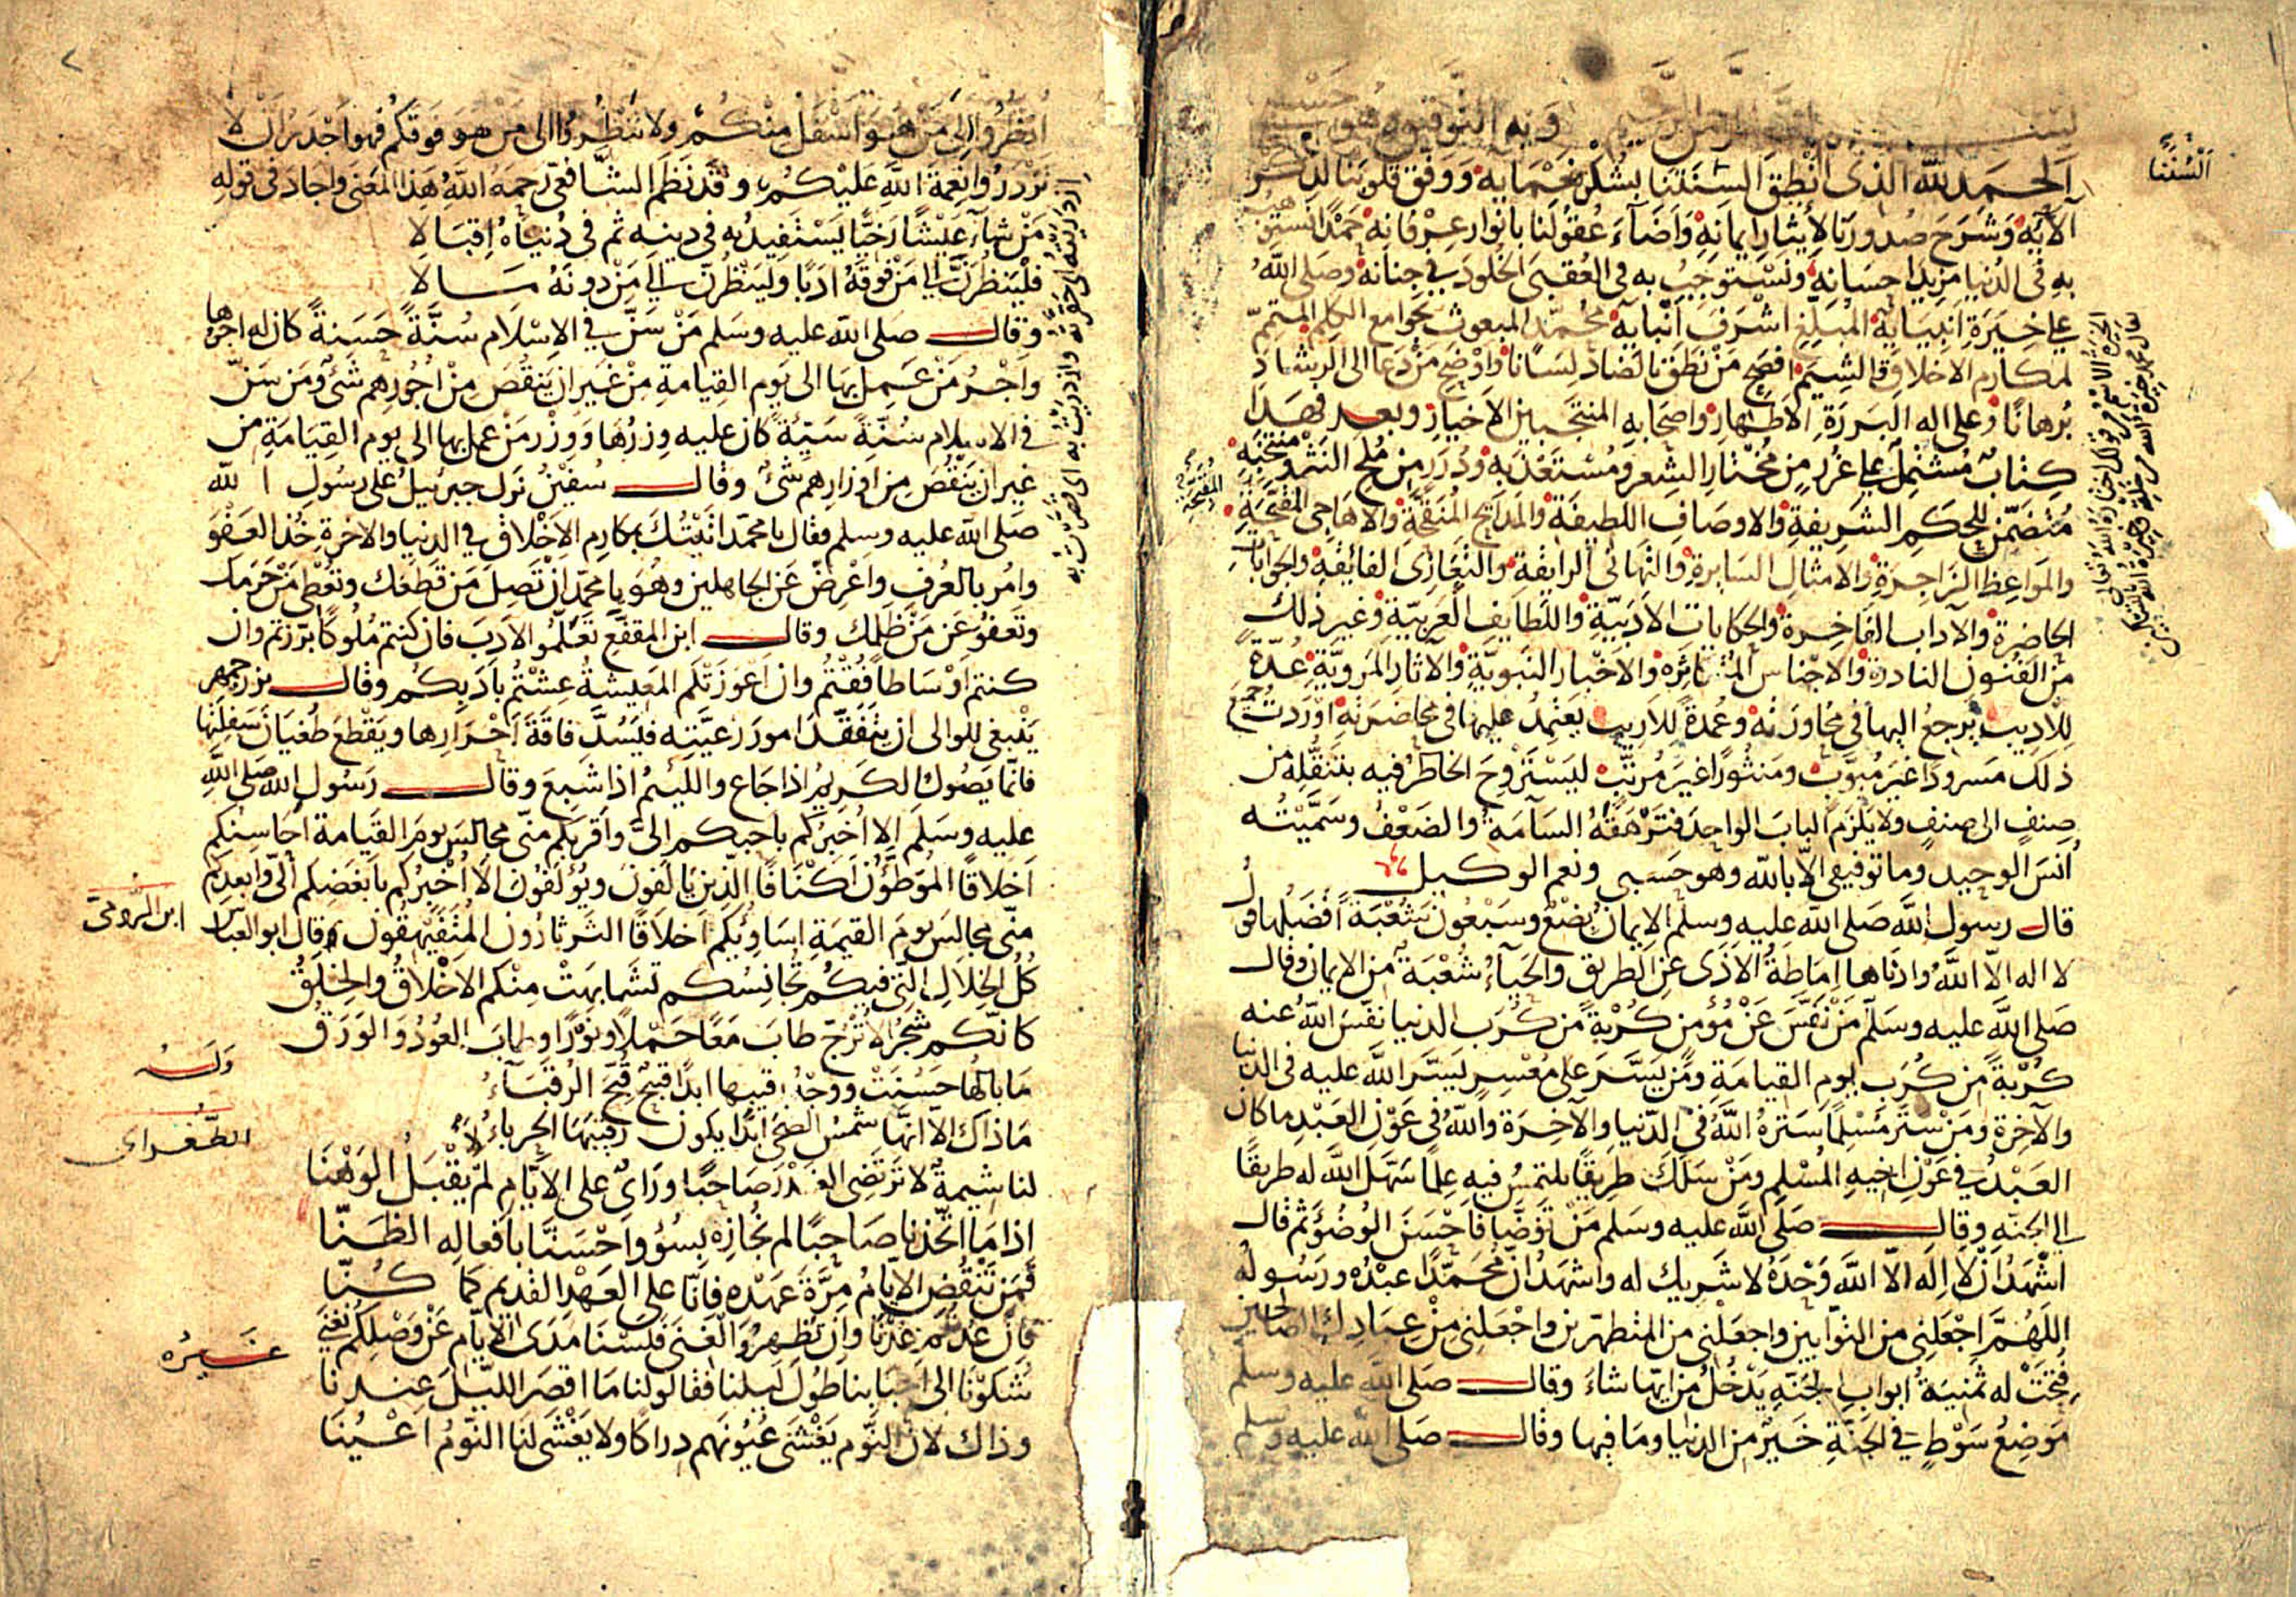 بسم الله الرحمن الرحيم وبه التوفيق وهو حسبي
الحمد لله الذي أنطق ألسنتنا بشكر نعمائه ووفق قلوبنا لذكر
آلائه وشرح صدورنا لإيثار إيمانه وأضاء عقولنا بأنوار عرفانه حمدًا نستحق
به في الدنيا مزيد إحسانه ونستوجب به في العقبى الخلود في جنانه وصلى الله
على خيرة أنبيائه المبلغ أشرف أنبائه محمد المبعوث بجوامع الكلم المتمم
لمكارم الأخلاق والشيم أفصح من نطق بالضاد لسانا وأوضح من دعا إلى الرشاد
برهانًا وعلى اله البررة الأطهار وأصحابه المنتجبين الأخيار وبعد فهذا
كتاب مشتمل على غرر من مختار الشعر ومستعذبه ودرر من ملح النثر ومنتخبه
متضمن للحكم الشريفة والاوصاف اللطيفة والمدايح المنقحة والاهاجي المقبحة
والمواعظ الزاجرة والامثال السايرة والتهاني الرايقة والتعازي الفائقة والجوابات
الحاضرة والآداب الفاخرة والحكايات الادبية واللطايف العربية وغير ذلك
من الفنون النادرة والاجناس المتناثره والاخبار النبوية والآثار المروية عدة
للاديب يرجع اليها في محاورته وعمدة للاريب يعتمد عليها في محاضرته اوردت جميع
ذلك مسرودا غير مبوب ومنثورا غير مرتب ليستروح الخاطر فيه بتنقله من
صنف الى صنف ولا يلزم الباب الواحد فترهقه السآمة والضعف وسميته
أنس الوحيد وما توفيقي الا بالله وهو حسبي ونعم الوكيل
قال رسول الله صلى الله عليه وسلم الايمان بضع وسبعون شعبة افضلها قول
لا اله الا الله وادناها اماطة الاذى عن الطريق والحياء شعبة من الايمان وقال
صلى الله عليه وسلم من نفس عن مؤمن كربة من كرب الدنيا نفس الله عنه
كربة من كرب يوم القيامة ومن يسر على معسر يسر الله عليه في الدنيا
والآخرة ومن ستر مسلما ستره الله في الدنيا والآخرة والله في عون العبد ما كان
العبد في عون اخيه المسلم ومن سلك طريقا يلتمس فيه علما سهل الله له طريقا
الى الجنة وقال صلى الله عليه وسلم من توضأ فاحسن الوضوء ثم قال
اشهد ان لا اله الا الله وحده لا شريك له واشهد ان محمدا عبده ورسوله
اللهم اجعلني من التوابين واجعلني من المتطهرين واجعلني من عبادك الصالحين
فتحت له ثمنية ابواب الجنة يدخل من ايها شاء وقال صلى الله عليه وسلم
موضع سوط في الجنة خير من الدنيا وما فيها وقال صلى الله عليه وسلم
ألسننا
المقبحة
انظروا إلى من هو أسفل منكم ولا تنظروا الى من هو فوقكم فهو أجدر أن لا
تزدروا نعمة الله عليكم وقد نظم الشافعي رحمه الله هذا المعنى واجاد في قوله
من شاء عيشا رخيا يستفيد به في دينه ثم في دنياه إقبالا
فلينظرن الى من فوقه ادبا ولينظرن الى من دونه مالا
وقال صلى الله عليه وسلم من سن في الاسلام سنة حسنة كان له اجرها
واجر من عمل بها الى يوم القيامة من غير ان ينقص من اجورهم شئ ومن سن
في الاسلام سنة سيئة كان عليه وزرها ووزر من عمل بها الى يوم القيامة من
غير ان ينقص من اوزارهم شئ وقال سفين نزل جبرئيل على رسول الله
صلى الله عليه وسلم فقال يا محمد اتيتك بمكارم الاخلاق في الدنيا والاخرة خذ العفو
وامر بالعرف واعرض عن الجاهلين وهو يا محمد ان تصل من قطعك وتعطي من حرمك
وتعفو عن من ظلمك وقال ابن المقفع تعلموا الادب فان كنتم ملوكا برزتم وان
كنتم اوساطا فقتم وان اعوزتكم المعيشة عشتم بأدبكم وقال بزرجمهر
ينبغي للوالي ان يتفقد امور رعيته فيسد فاقة احرارها ويقطع طغيان سفلتها
فانما يصول الكريم اذا جاع واللئيم اذا شبع وقال رسول الله صلى الله
عليه وسلم الا اخبركم باحبكم الي واقربكم مني مجالس يوم القيامة احاسنكم
اخلاقا الموطؤن اكنافا الذين يالفون ويؤلفون الا اخبركم بابغضكم الي وابعدكم
مني مجالس يوم القيمة اساوئكم اخلاقا الثرثارون المتفيهقون وقال ابو العباس
ابن الرومي
كل الخلال التي فيكم محاسنكم تشابهت منكم الاخلاق والخلق
كانكم شجر الاترج طاب معا حملا ونورا وطاب العود والورق
وله
ما بالها حسنت ورقيبها ابدا قبيح قبح الرقباء
ما ذاك الا انها شمس الضحى ابدا يكون رقيبها الحرباء
الطغراي
لنا شيمة لا ترتضي الغدر صاحبا وراي على الايام لم يقبل الوهنا
اذا ما اتخذنا صاحبا لم نجازه بسوء واحسنا بافعاله الظنا
فمن تنقض الايام مرة عهده فانا على العهد القديم كما كنا
فان عدتم عدنا وان تظهروا الغنى فلسنا مدى الايام عن وصلكم نغنى
غيره
شكونا الى احبابنا طول ليلنا فقالوا لنا ما اقصر الليل عندنا
وذاك لان النوم يغشى عيونهم دراكا ولا يغشى لنا النوم اعينا